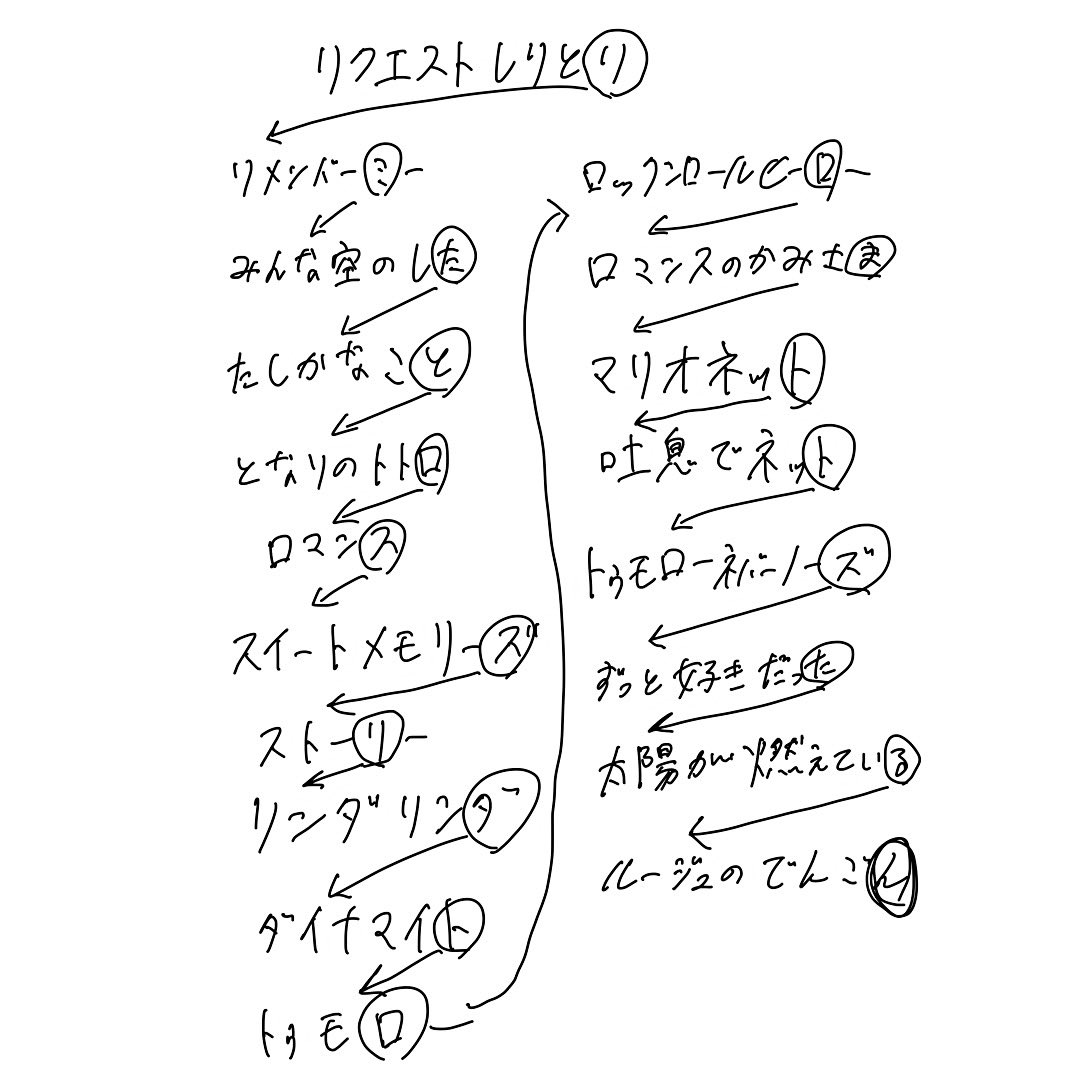 リクエストしりとり
リメンバーミー
みんな空のした
たしかなこと
となりのトトロ
ロマンス
スイートメモリーズ
ストーリー
リンダリンダ
ダイナマイト
トゥモロー
ロックンロールヒーロー
ロマンスのかみさま
マリオネット
吐息でネット
トゥモローネバーノーズ
ずっと好きだった
太陽が燃えている
ルージュのでんごん